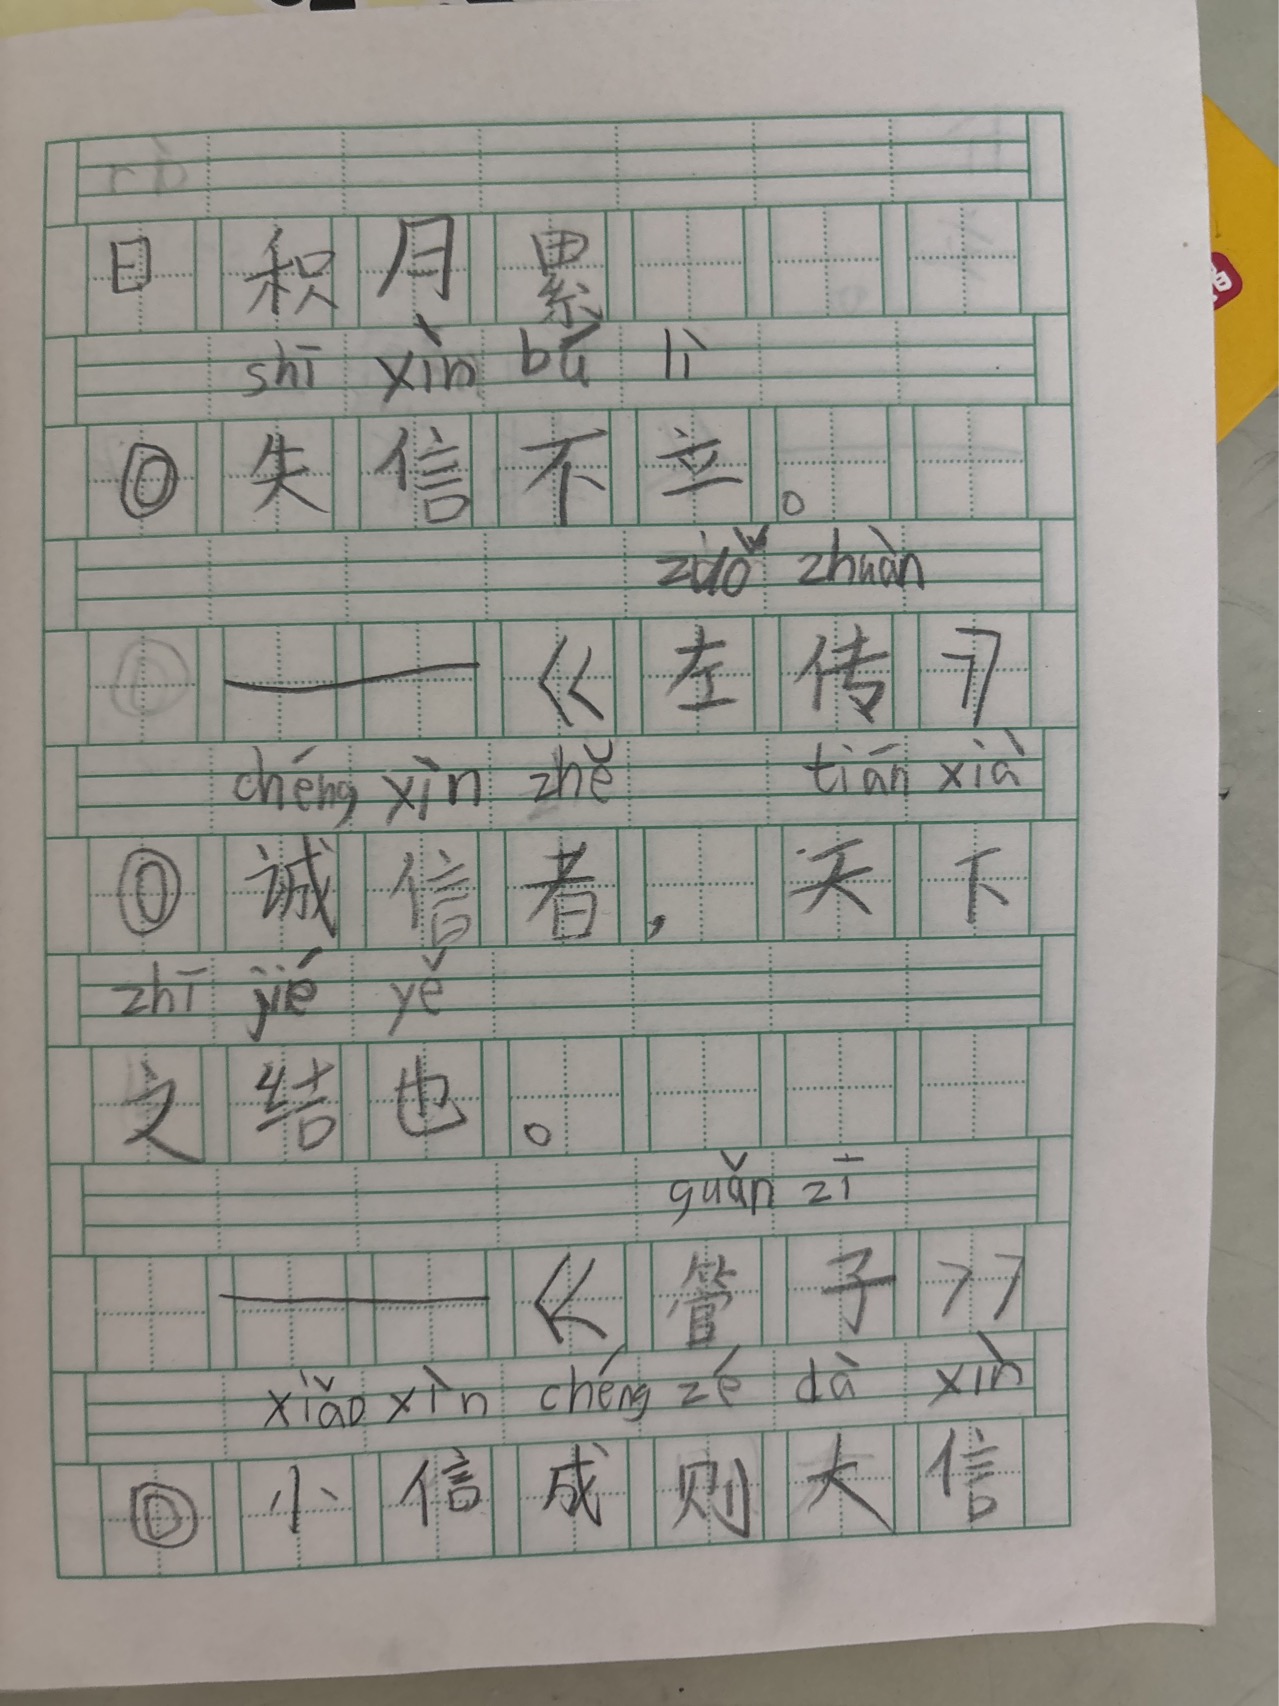 日积月累
shī xìn bú lì
◎失信不立。
zuǒ zhuàn
——《左传》
chéng xìn zhě tiān xià
◎诚信者，天下
zhī jié yě
之结也。
guǎn zī
——《管子》
xiǎo xìn chéng zé dà xìn
◎小信成则大信